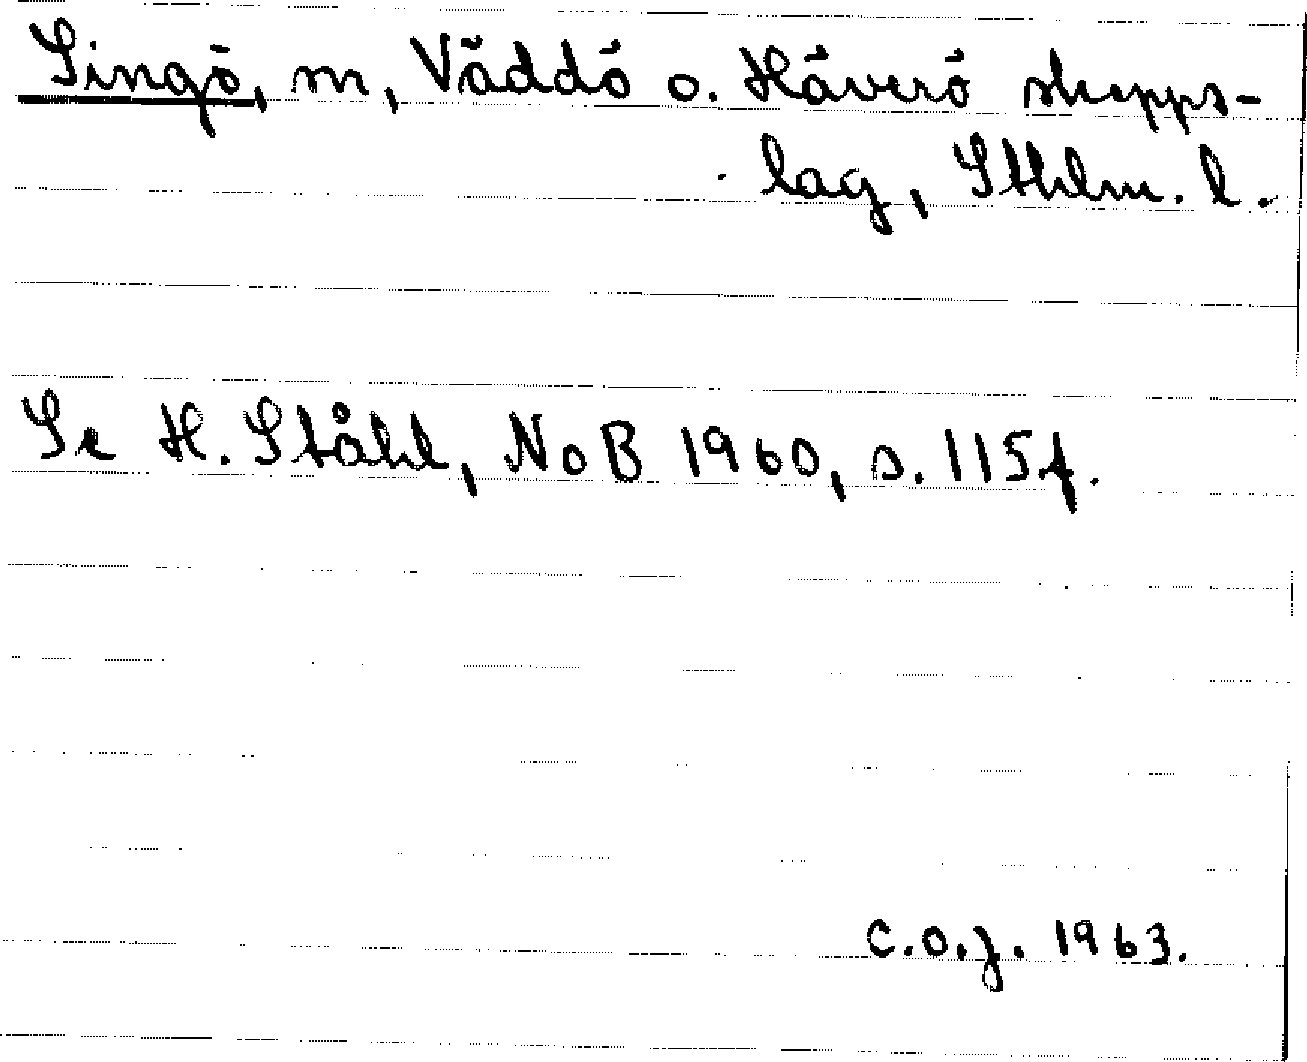 Singö, m, Väddö o. Häverö skepps-
lag, Sthlm. l.
Se H. Ståhl, NoB 1960, s. 115f.
C.O.J. 1963.